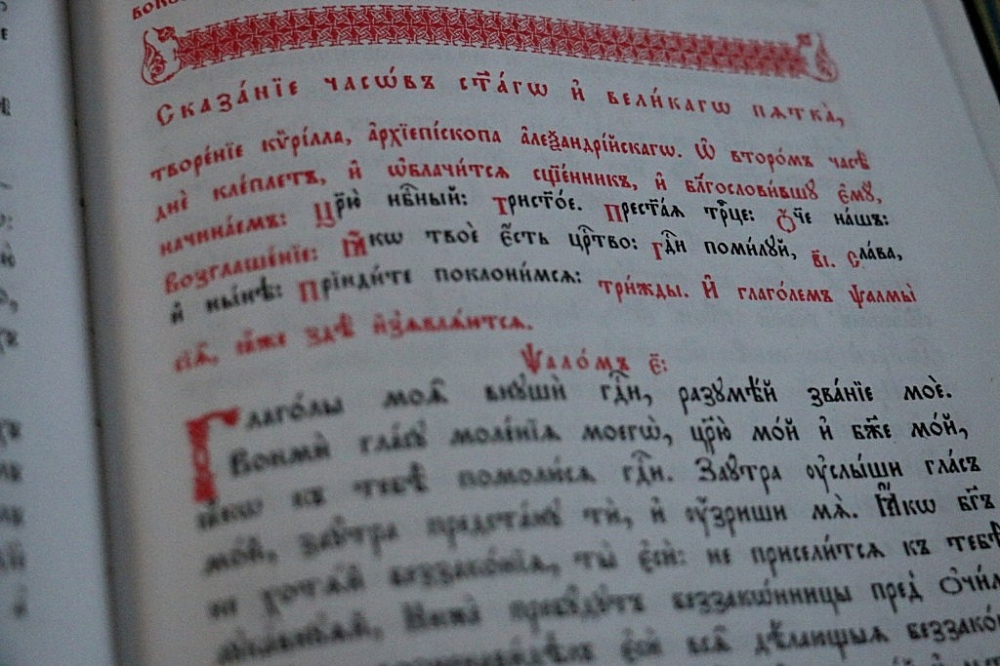 Сказа́нїе часѡ́въ ст҃а́гѡ и҆ вели́кагѡ пѧтка̀,
творе́нїе кѷрі́лла, а҆рхїепі́скопа а҆леѯандрі́йскагѡ. Ѡ҆ второ́мъ часѣ̀
днѐ кле́плетъ, и҆ ѡ҆блачи́тсѧ сщ҃е́нникъ, и҆ бл҃гослови́вшꙋ є҆мꙋ̀,
начина́емъ: Цр҃ю̀ нбⷭ҇ный: Трист҃о́е. Прест҃а́ѧ трⷪ҇це: Ѻ҆́ч҃е на́шъ:
Возглаше́нїе: Ꙗ҆́кѡ твоѐ є҆́сть црⷭ҇тво: гдⷭ҇и поми́лꙋй, в҃і. Сла́ва,
и҆ ны́нѣ: Прїиди́те поклони́мсѧ: три́жды. И҆ глаго́лемъ ѱалмы̀
сїѧ̑, и҆̀же здѣ̀ и҆з̾ѧвлѧ́ютсѧ.
Ѱало́мъ є҃:
Глаго́лы моѧ̑ внꙋшѝ гдⷭ҇и, разꙋмѣ́й зва́нїе моѐ.
Вонмѝ гла́сꙋ моле́нїѧ моегѡ̀, цр҃ю̀ мо́й и҆ бж҃е мо́й,
ꙗ҆́кѡ къ тебѣ̀ помолю́сѧ гдⷭ҇и. Заꙋ́тра ᲂу҆слы́ши гла́съ
мо́й, заꙋ́тра предста́нꙋ тѝ, и҆ ᲂу҆́зриши мѧ̀. Ꙗ҆́кѡ бг҃ъ
не хотѧ́й беззако́нїѧ, ты̀ є҆сѝ: не присели́тсѧ къ тебѣ̀
лꙋка́внꙋѧй, нижѐ пребꙋ́дꙋтъ беззакѡ́нницы пред̾ ѻ҆чи́ма
є҆сѝ всѧ̑ дѣ́лающыѧ беззако́